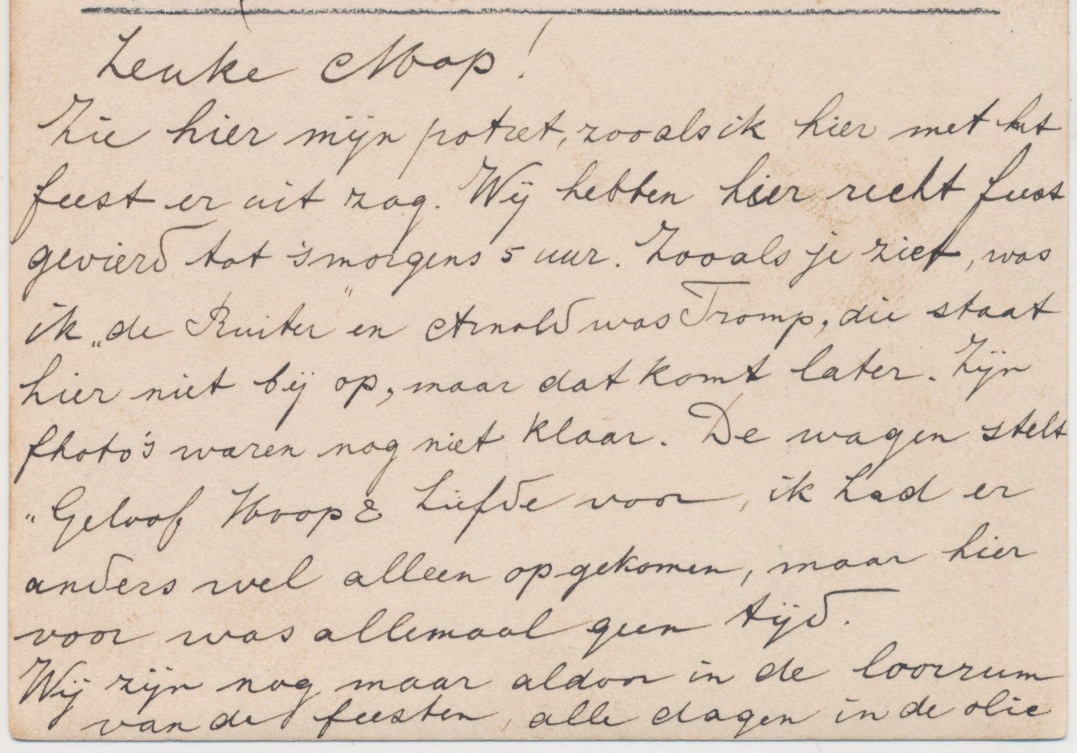 Leuke Mop!
Zie hier mijn potret, zooals ik hier met het
feest er uit zag. Wij hebben hier recht feest
gevierd tot 's morgens 5 uur. Zooals je ziet, was
ik „de Ruiter" en Arnold was Tromp, die staat
hier niet bij op, maar dat komt later. Zijn
photo's waren nog niet klaar. De wagen stelt
„Geloof Hoop & Liefde voor, ik had er
anders wel alleen op gekomen, maar hier
voor was allemaal geen tijd.
Wij zijn nog maar aldoor in de loorzum
van de feesten, alle dagen in de olie